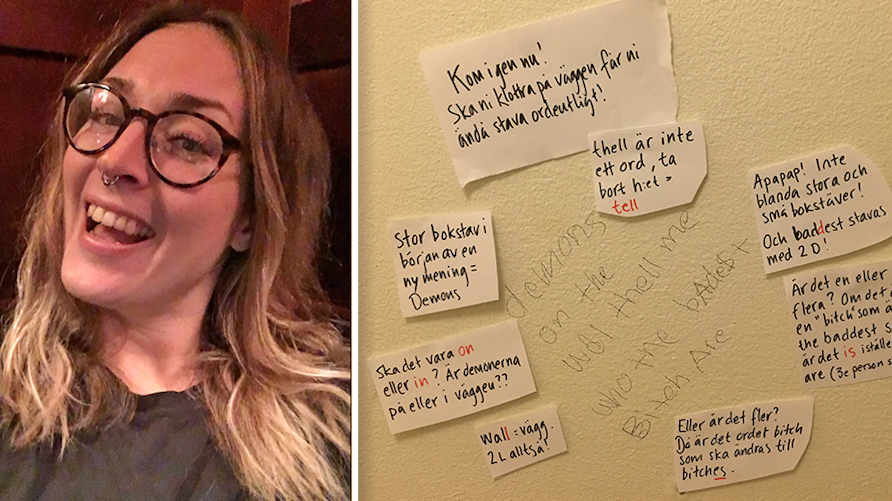 Kom igen nu!
Ska ni klottra på väggen får ni
ändå stava ordentligt!
thell är inte
ett ord, ta
bort h:et =
tell
Apapap! Inte
blanda stora och
små bokstäver!
Och baddest stavas
med 2 D!
Stor bokstav i
början av en
ny mening =
Demons
demons
on the
wol thell me
who the badest
Bitch Are
Är det en eller
flera? Om det ä
en "bitch" som ä
the baddest s
är det is iställe
are (3e person s
Ska det vara on
eller in? Är demonerna
på eller i väggen??
Wall = vägg.
2 L alltså!
Eller är det fler?
Då är det ordet bitch
som ska ändras till
bitches.